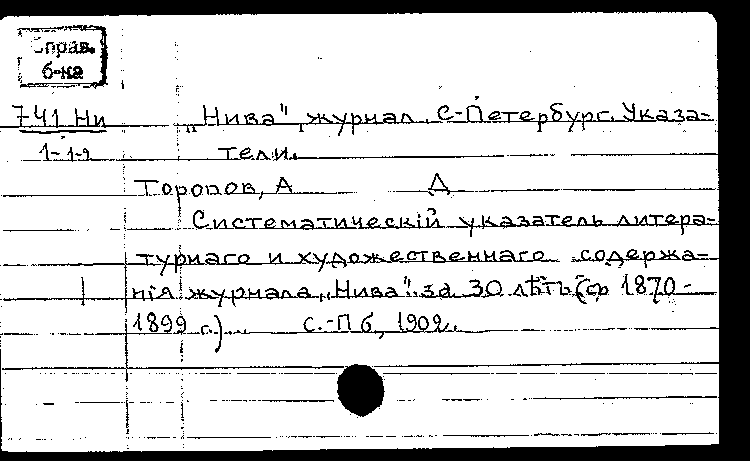 Справ.
б-ка
741 Ни „Нива", журнал. С-Петербург. Указа-
1-1-2 тели.
Торопов, А Д
Систематическiй указатель литера-
турнаго и художественнаго содержа-
нiя журнала „Нива" за 30 лѣтъ (с 1870-
1899 г.)... С.-Пб, 1902.